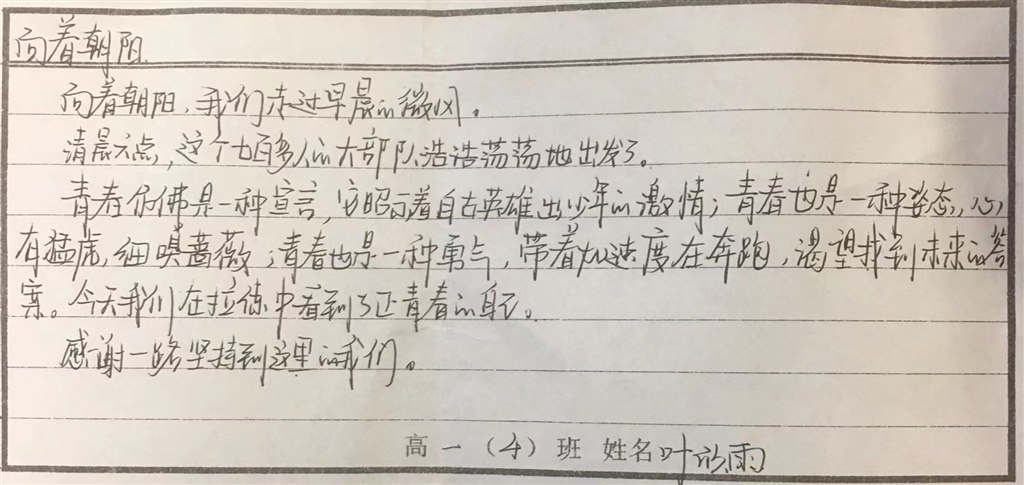 向着朝阳
向着朝阳，我们走过早晨的微风。
清晨六点，这个七百多人的大部队浩浩荡荡地出发了。
青春仿佛是一种宣言，它昭示着自古英雄出少年的激情；青春也是一种姿态，心
有猛虎，细嗅蔷薇；青春也是一种勇气，带着加速度在奔跑，渴望找到未来的答
案。今天我们在拉练中看到了正青春的自己。
感谢一路坚持到这里的我们。
高一（4）班 姓名叶欣雨